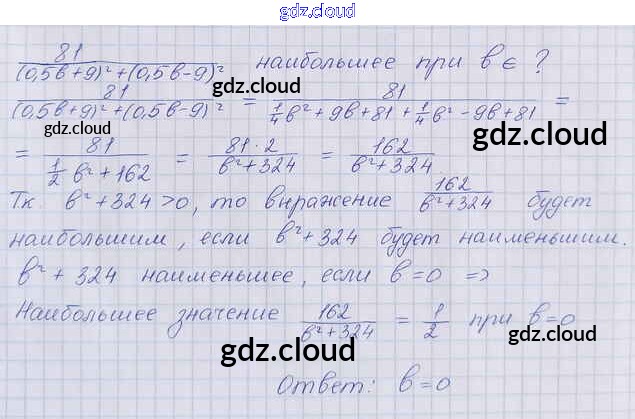 gdz.cloud
81/((0,5в+9)²+(0,5в-9)²) наибольшее при в ∈ ?
gdz.cloud
81/((0,5в+9)²+(0,5в-9)²) = 81/(¼в²+9в+81+¼в²-9в+81) =
gdz.cloud
gdz.cloud
= 81/(½в²+162) = 81·2/(в²+324) = 162/(в²+324)
gdz.cloud
Тк в²+324>0, то выражение 162/(в²+324) будет
gdz.cloud
наибольшим, если в²+324 будет наименьшим.
в²+324 наименьшее, если в=0 =>
Наибольшее значение 162/(в²+324) = 1/2 при в=0
gdz.cloud
gdz.cloud
Ответ: в=0